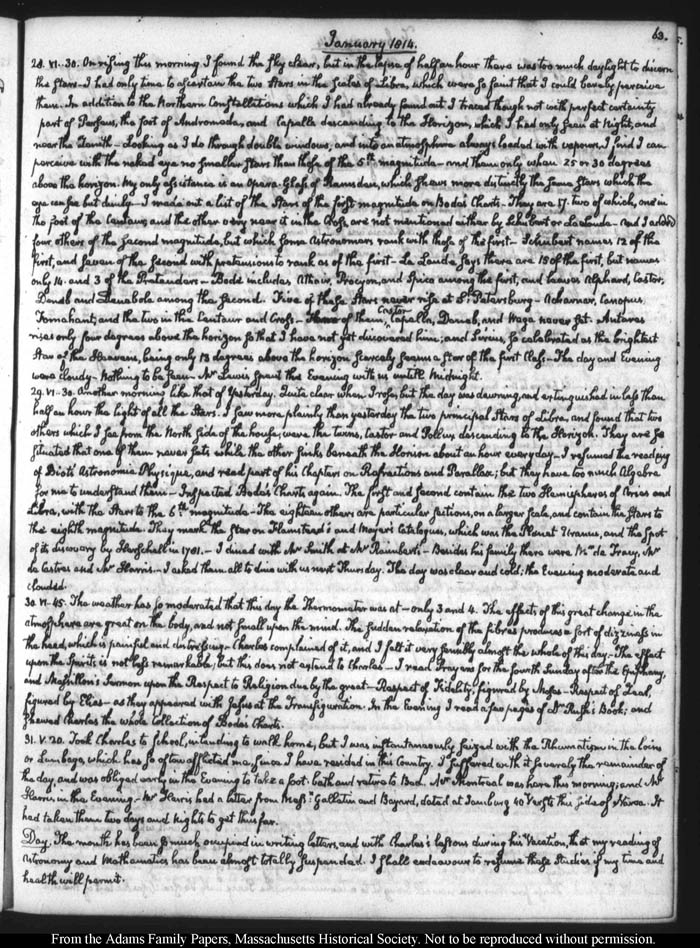 63.
January 1814.
28. VI. 30. On rising this morning I found the sky clear, but in the lapse of half an hour there was too much daylight to discern
the Stars. I had only time to ascertain the two Stars in the Scales of Libra, which were so faint that I could barely perceive
them. In addition to the Northern Constellations which I had already found out I traced though not with perfect certainty
part of Perseus, the foot of Andromeda, and Capella descending to the Horizon, which I had only seen at Night, and
near the Zenith - Looking as I do through double windows, and into an atmosphere always loaded with vapours, I find I can
perceive with the naked eye no smaller Stars than those of the 5th magnitude - and them only when 25 or 30 degrees
above the horizon. My only assistance is an Opera-Glass of Ramsden, which shews more distinctly the same Stars which the
eye can see but dimly - I made out a list of the Stars of the first magnitude on Bode's Charts. They are 17. two of which, one in
the foot of the Centaur, and the other very near it in the Cross, are not mentioned either by Schubert or La Lande - And I added
four others of the second magnitude, but which some Astronomers rank with those of the first - Schubert names 12 of the
first, and seven of the second with pretensions to rank as of the first - La Lande says there are 18 of the first, but names
only 14. and 3 of the Pretenders - Bode includes Athair, Procyon, and Spica among the first, and leaves Alphard, Castor,
Deneb and Denebola among the second. Five of these Stars never rise at St. Petersburg - Acharnar, Canopus,
Fomahant, and the two in the Centaur and Cross - of them, Castor Capella, Deneb, and Wega never set. Antares
rises only four degrees above the horizon so that I have not yet discovered him; and Sirius, so celebrated as the brightest
Star of the Heavens, being only 13 degrees above the horizon scarcely seems a Star of the first Class - The day and Evening
were cloudy - Nothing to be seen - Mr Lewis spent the Evening with us untill Midnight.
29. VI. 30. Another morning like that of Yesterday. Quite clear when I rose, but the day was dawning, and extinguished in less than
half an hour the light of all the Stars. I saw more plainly than yesterday the two principal Stars of Libra, and found that two
others which I see from the North side of the house, were the twins, Castor and Pollux descending to the Horizon. They are so
situated that one of them never sets while the other sinks beneath the Horison about an hour every day - I resumed the reading
of Biot's Astronomie Physique, and read part of his Chapters on Refractions and Parallax; but they have too much Algebra
for me to understand them - Inspected Bode's Charts again. The first and second contain the two Hemispheres of Aries and
Libra, with the Stars to the 6th magnitude - The eighteen others are particular sections, on a larger scale, and contain the Stars to
the eighth magnitude. They mark the Star on Flamstead's and Mayer's Catalogues, which was the Planet Uranus, and the spot
of its discovery by Herschell in 1781. - I dined with Mr Smith at Mr Raimbert's - Besides his family there were Mme de Tracy, Mr
de Castres and Mr Harris. - I asked them all to dine with us next Thursday. The day was clear and cold; the Evening moderate and
clouded.
30. VI. 45. The weather has so moderated that this day the Thermometer was at - only 3 and 4. The effects of this great change in the
atmosphere are great on the body, and not small upon the mind. The sudden relaxation of the fibres produces a sort of dizziness in
the head, which is painful and distressing. Charles complained of it, and I felt it very sensibly almost the whole of this day - The effect
upon the Spirits is not less remarkable, but this does not extend to Charles - I read Prayers for the fourth Sunday after the Epiphany,
and Massillon's Sermon upon the Respect to Religion due by the great - Respect of Fidelity, figured by Moses - Respect of Zeal,
figured by Elias - as they appeared with Jesus at the Transfiguration. In the Evening I read a few pages of Dr Rush's Book; and
shewed Charles the whole Collection of Bode's Charts.
31. V. 20. Took Charles to School, intending to walk home, but I was instantaneously seized with the Rheumatism in the loins
or Lumbago, which has so often afflicted me, since I have resided in this Country. I suffered with it severely the remainder of
the day and was obliged early in the Evening to take a foot-bath and retire to Bed. Mr Montreal was here this morning; and Mr
Harris in the Evening - Mr Harris had a letter from Messrs Gallatin and Bayard, dated at Jamburg 40 Versts this side of Narva. It
had taken them two days and Nights to get thus far.
Day. The month has been so much occupied in writing letters, and with Charles's lessons during his Vacation, that my reading of
Astronomy and Mathematics has been almost totally suspended. I shall endeavour to resume these Studies if my time and
health will permit.
From the Adams Family Papers, Massachusetts Historical Society. Not to be reproduced without permission.